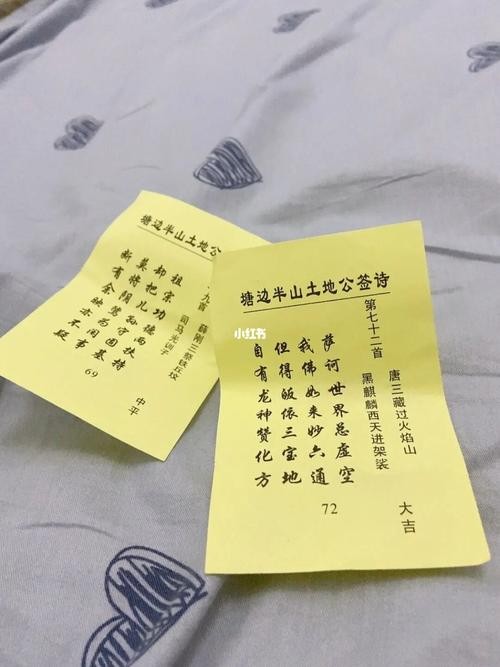 塘边半山土地公
九首
薛刚三祭铁丘坟
司马光训子
中平
祖宗功
扶持
却把儿孙守
基
莫将阴骘为闲事
有余
不疑
69
小红书
塘边半山土地公签诗
第七十二首
唐三藏过火焰山
黑麒麟西天进架裟
大吉
萨诃世界总虚空
我佛如来妙六通
但得皈依三宝地
自有龙神赞化方
72